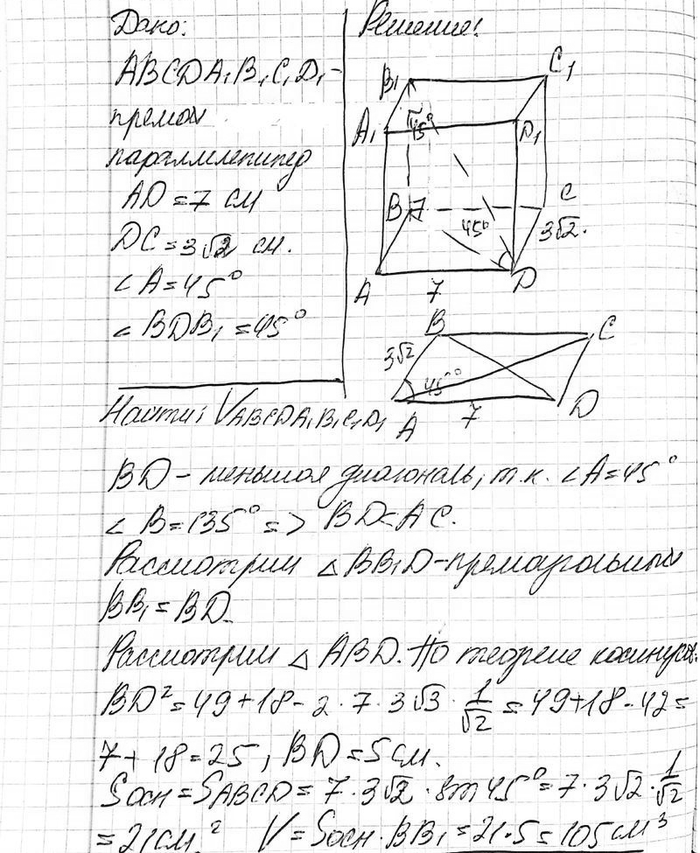 Дано:
Решение:
ABCDA₁B₁C₁D₁ -
прямой
параллелепипед
AD = 7 см
DC = 3√2 см.
∠A = 45°
∠BDB₁ = 45°
Найти: V ABCDA₁B₁C₁D₁
B₁ C₁
A₁ 45° D₁
B 45° C
3√2.
A 7 D
B C
3√2 45°
A 7 D
BD - меньшая диагональ, т.к. ∠A = 45°
∠B = 135° => BD < AC.
Рассмотрим △BB₁D - прямоугольный
BB₁ = BD.
Рассмотрим △ABD. По теореме косинусов:
BD² = 49 + 18 - 2 · 7 · 3√3 · 1/√2 = 49 + 18 - 42 =
7 + 18 = 25, BD = 5 см.
Sосн = SABCD = 7 · 3√2 · sin 45° = 7 · 3√2 · 1/√2
= 21 см.² V = Sосн · BB₁ = 21 · 5 = 105 см³